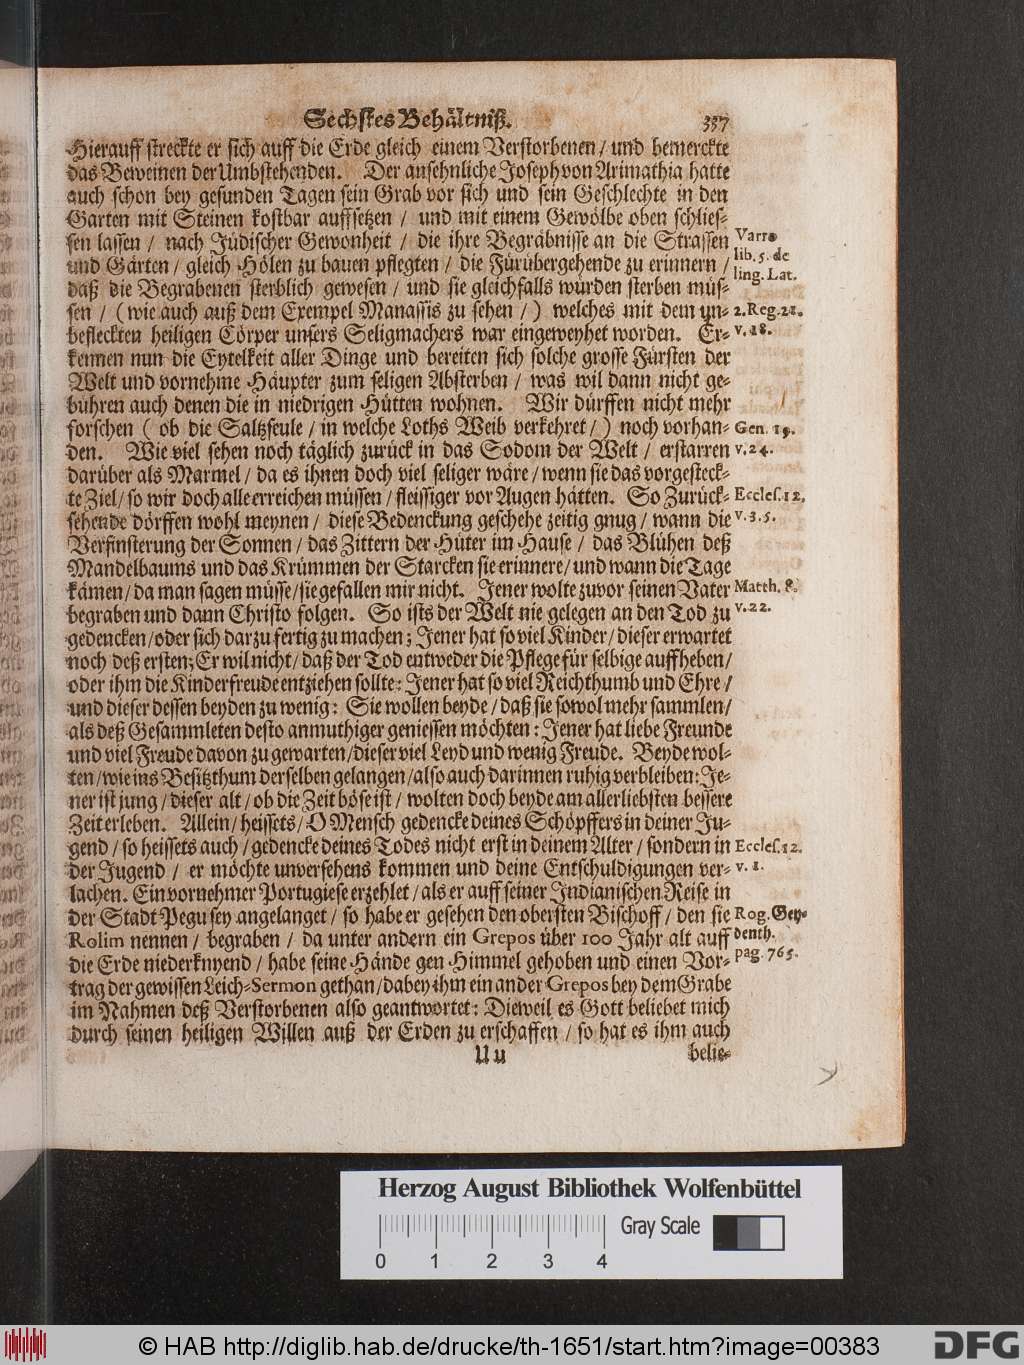 Sechstes Behältniß. 337
Hierauff streckte er sich auff die Erde gleich einem Verstorbenen / und bemerckte
das Beweinen der Umbstehenden. Der ansehnliche Joseph von Arimathia hatte
auch schon bey gesunden Tagen sein Grab vor sich und sein Geschlechte in den
Garten mit Steinen kostbar auffsetzen / und mit einem Gewölbe oben schlies-
sen lassen / nach Jüdischer Gewonheit / die ihre Begräbnisse an die Strassen
Varro
und Gärten / gleich Hölen zu bauen pflegten / die Fürübergehende zu erinnern /
lib. 5. de
daß die Begrabenen sterblich gewesen / und sie gleichfalls würden sterben müs-
ling. Lat.
sen / (wie auch auß dem Exempel Manassis zu sehen /) welches mit dem un-
2. Reg. 21.
befleckten heiligen Cörper unsers Seligmachers war eingeweyhet worden. Er-
v. 18.
kennen nun die Eytelkeit aller Dinge und bereiten sich solche grosse Fürsten der
Welt und vornehme Häupter zum seligen Absterben / was wil dann nicht ge-
bühren auch denen die in niedrigen Hütten wohnen. Wir dürffen nicht mehr
forschen ( ob die Saltzseule / in welche Loths Weib verkehret /) noch vorhan-
Gen. 19.
den. Wie viel sehen noch täglich zurück in das Sodom der Welt / erstarren
v. 24.
darüber als Marmel / da es ihnen doch viel seliger wäre / wenn sie das vorgesteck-
te Ziel / so wir doch alle erreichen müssen / fleissiger vor Augen hätten. So Zurück-
Eccles. 12.
sehende dörffen wohl meynen / diese Bedenckung geschehe zeitig gnug / wann die
v. 3. 5.
Verfinsterung der Sonnen / das Zittern der Hüter im Hause / das Blühen deß
Mandelbaums und das Krümmen der Starcken sie erinnere / und wann die Tage
kämen / da man sagen müsse / sie gefallen mir nicht. Jener wolte zuvor seinen Vater
Matth. 8.
begraben und dann Christo folgen. So ists der Welt nie gelegen an den Tod zu
v. 22.
gedencken / oder sich darzu fertig zu machen; Jener hat so viel Kinder / dieser erwartet
noch deß ersten; Er wil nicht / daß der Tod entweder die Pflege für selbige auffheben /
oder ihm die Kinderfreude entziehen sollte: Jener hat so viel Reichthumb und Ehre /
und dieser dessen beyden zu wenig: Sie wollen beyde / daß sie sowol mehr sammlen /
als deß Gesammleten desto anmuthiger geniessen möchten: Jener hat liebe Freunde
und viel Freude davon zu gewarten / dieser viel Leyd und wenig Freude. Beyde wol-
ten / wie ins Besitzthum derselben gelangen / also auch darinnen ruhig verbleiben: Je-
ner ist jung / dieser alt / ob die Zeit böse ist / wolten doch beyde am allerliebsten bessere
Zeit erleben. Allein / heissets / O Mensch gedencke deines Schöpffers in deiner Ju-
gend / so heissets auch / gedencke deines Todes nicht erst in deinem Alter / sondern in
Eccles. 12.
der Jugend / er möchte unversehens kommen und deine Entschuldigungen ver-
v. 1.
lachen. Ein vornehmer Portugiese erzehlet / als er auff seiner Indianischen Reise in
der Stadt Pegu sey angelanget / so habe er gesehen den obersten Bischoff / den sie
Rog. Gey-
Rolim nennen / begraben / da unter andern ein Grepos über 100 Jahr alt auff
denth.
die Erde niederknyend / habe seine Hände gen Himmel gehoben und einen Vor-
pag. 765.
trag der gewissen Leich-Sermon gethan / dabey ihm ein ander Grepos bey dem Grabe
im Nahmen deß Verstorbenen also geantwortet: Dieweil es Gott beliebet mich
durch seinen heiligen Willen auß der Erden zu erschaffen / so hat es ihm auch
Uu belie-
Herzog August Bibliothek Wolfenbüttel
Gray Scale
0 1 2 3 4
© HAB http://diglib.hab.de/drucke/th-1651/start.htm?image=00383
DFG